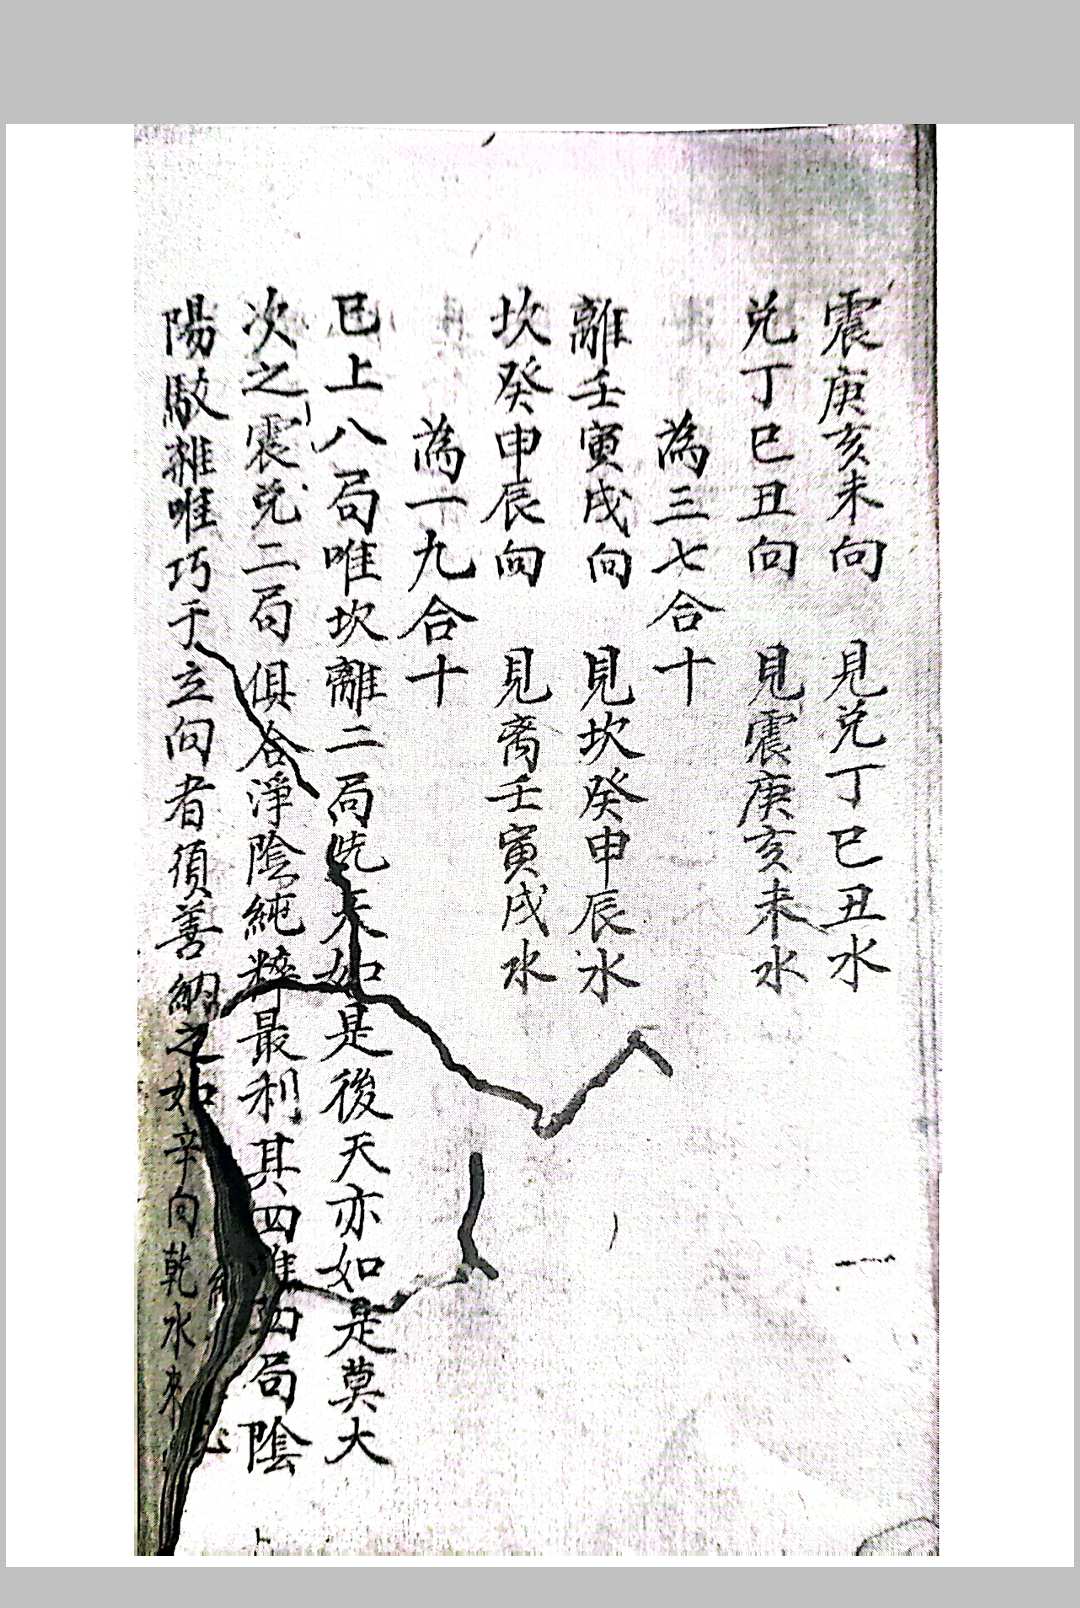 震庚亥未向　見兌丁巳丑水
兌丁巳丑向　見震庚亥未水
為三七合十
離壬寅戌向　見坎癸申辰水
坎癸申辰向　見离壬寅戌水
為一九合十
已上八局唯坎離二局先天如是後天亦如是莫大
次之震兌二局俱合淨陰純粹最利其四維四局陰
陽駁雜唯巧于立向者須善納之如辛向乾水來